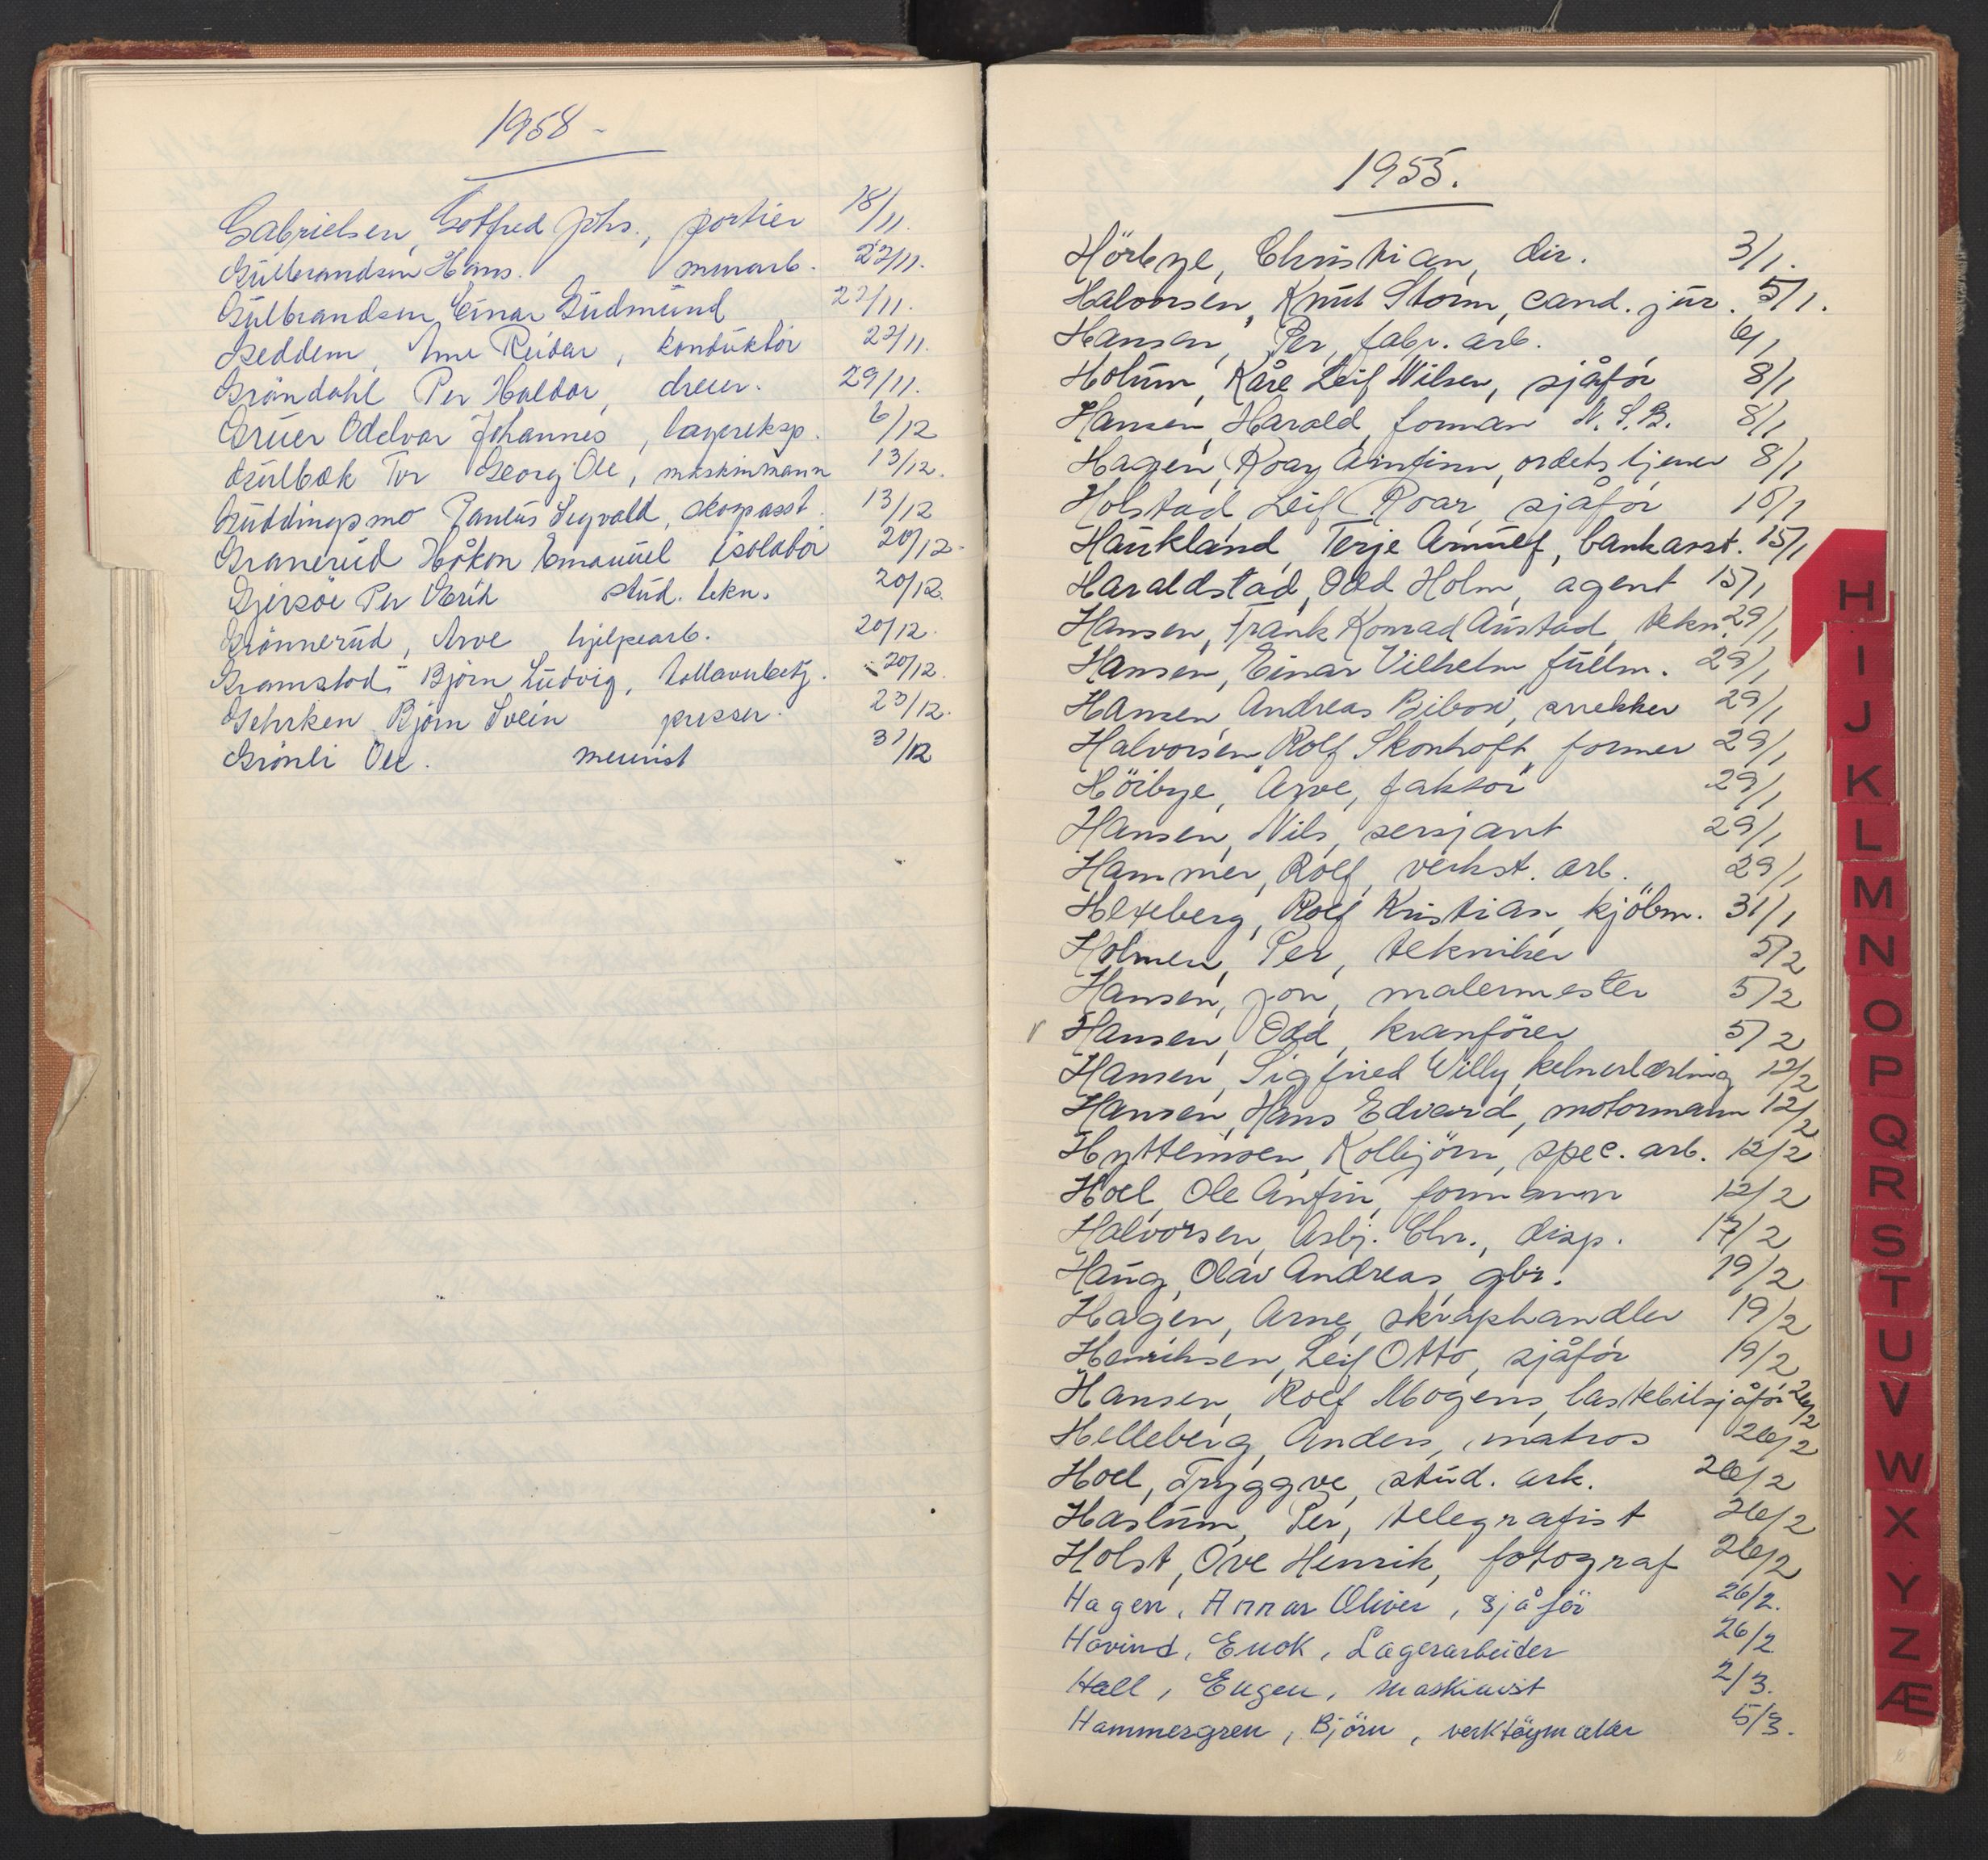 1958 -
Gabrielsen, Gotfred Johs., portier 18/11.
Gulbrandsen Hans. murarb. 22/11.
Gulbrandsen, Einar Gudmund 22/11.
Geddem, Reidar, konduktör 22/11.
Gröndahl Per Haldor, dreier. 29/11.
Gruer Oddvar Johannes, lagereksp. 6/12
Gulbæk Tor Georg Ole, maskinmann 13/12.
Guddingsmo Paulus Sigvald, skogasst. 13/12
Granerud Håkon Emanuel isolatör 20/12.
Gjersöe Per Erik stud. tekn. 20/12.
Grönnerud, Arve hjelpearb. 20/12.
Gramstad, Björn Ludvig, tolloverbetj. 20/12.
Gehrken Björn Svein presser. 23/12.
Grönli Ole. murist 31/12
1955.
Hörbye, Christian, dir. 3/1.
Halvorsen, Knut Storm, cand. jur. 5/1.
Hansen, Per, fabr. arb. 6/1
Holum, Kåre Leif Wilsen, sjåför 8/1
Hansen, Harald, forman N.S.B. 8/1
Hagen, Roay Arnfinn, ordets tjener 8/1
Holstad, Leif Roar, sjåför 10/1
Haukland, Terje Arnulf, bankasst. 15/1
Haraldstad, Odd Holm, agent 15/1
Hansen, Frank Konrad Austad, tekn. 29/1
Hansen, Einar Vilhelm fullm. 29/1
Hansen Andreas Bibow, snekker 29/1
Halvorsen, Rolf Skonhoft, former 29/1
Höibye, Arve, faktor 29/1
Hansen, Nils, sersjant 29/1
Hammer, Rolf, verkst. arb. 29/1
Hexeberg, Rolf Kristian, kjöbm. 31/1
Holmen, Per, tekniker 5/2
Hansen, Jon, malermester 5/2
Hansen, Odd, kranförer 5/2
Hansen, Sigfried Willy, kelnerlærling 12/2
Hansen, Hans Edvard, motormann 12/2
Hytteinsen, Kolbjörn, spec. arb. 12/2
Hoel, Ole Anfin, formann 12/2
Halvorsen, Asbj. Chr., disp. 17/2
Haug, Olav Andreas, gbr. 19/2
Hagen, Arne, skraphandler 19/2
Henriksen, Leif Otto, sjåför 19/2
Hansen, Rolf Mogens, lastebilsjåför 26/2
Helleberg, Anders, matros 26/2
Hoel, Tryggve, stud. ark. 26/2
Haslum, Per, telegrafist 26/2
Holst, Ove Henrik, fotograf 26/2
Hagen, Annar Oliver, sjåför 26/2.
Hovind, Enok, Lagerarbeider 26/2
Hall, Eugen, maskinist 2/3.
Hammergren, Björn, verktöymaker 5/3.
H
I
J
K
L
M
N
O
P
Q
R
S
T
U
V
W
X
Y
Z
Æ